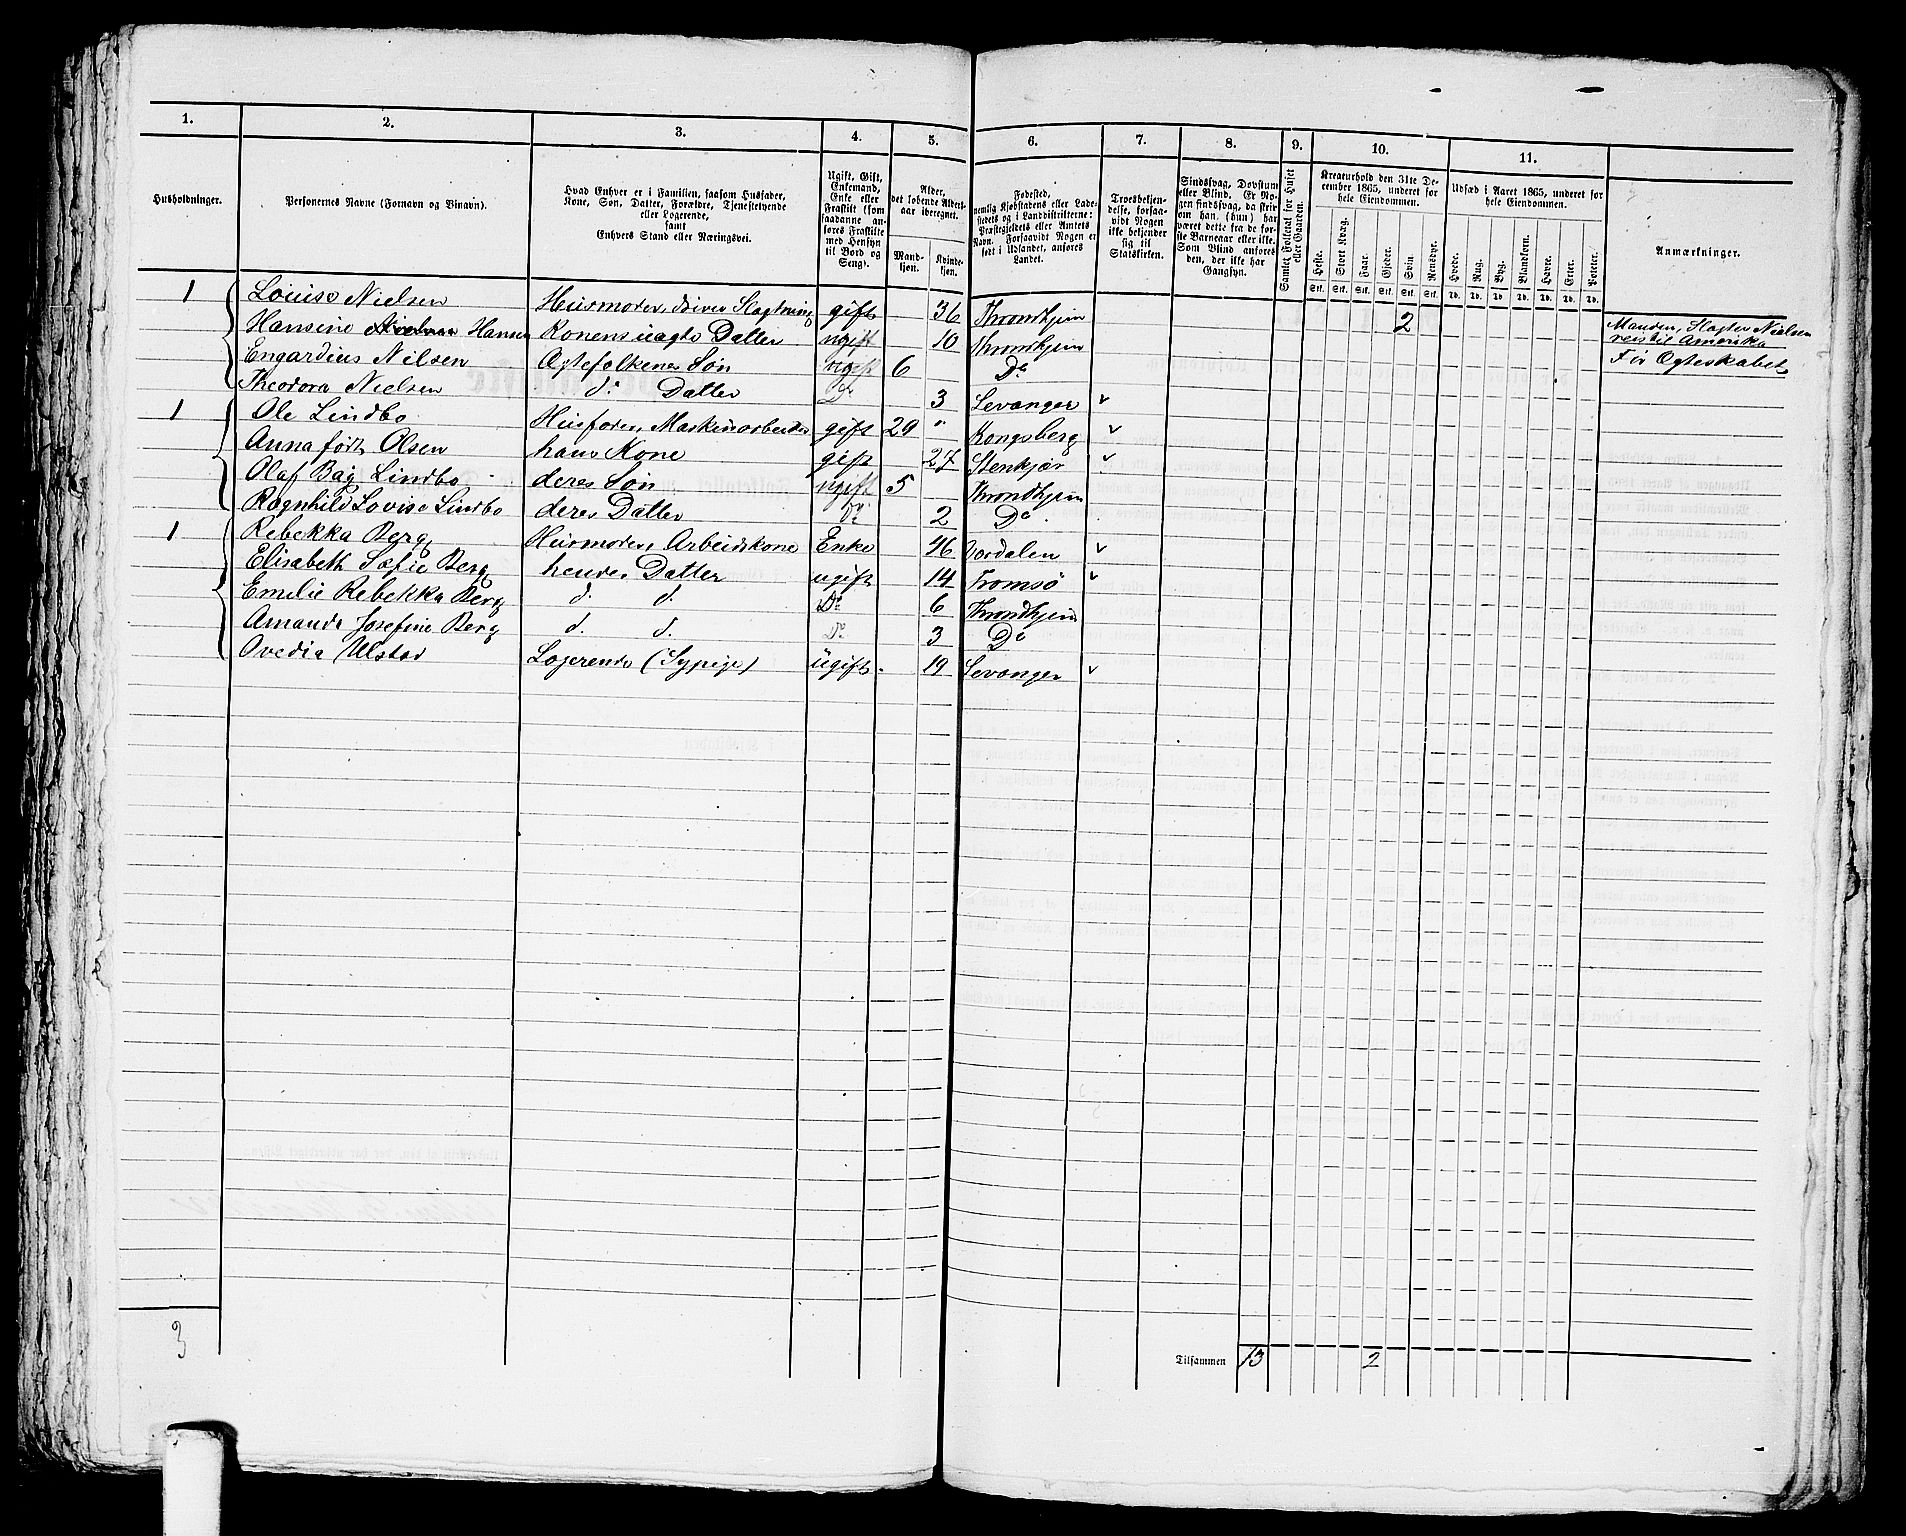 1. 2. 3. 4. 5. 6. 7. 8. 9. 10. 11.
Husholdninger.
Personernes Navne (Fornavn og Binavn).
Hvad Enhver er i Familien, saasom Husfader,
Kone, Søn, Datter, Forældre, Tjenestetyende
eller Logerende,
samt
Enhvers Stand eller Næringsvei.
Ugift, Gift,
Enkemand,
Enke eller
Fraskilt (som
saadanne an-
føres Fraskilte
med Hensyn
til Bord og
Seng).
Alder,
det løbende Alders-
aar iberegnet.
Mand-
kjøn.
Kvinde-
kjøn.
Fødested,
nemlig Kjøbstadens eller Lade-
stedets og i Landdistrikterne:
Præstegjeldets eller Amtets
Navn. Forsaavidt Nogen er
født i Udlandet, anføres
Landet.
Troesbekjen-
delse, forsaa-
vidt Nogen
ikke bekjender
sig til
Statskirken.
Sindssvag, Døvstum
eller Blind. Er No-
gen sindssvag, da skri-
ves om han (hun) har
været dette fra de før-
ste Barneaar eller ikke.
Som Blind anføres
den, der ikke har
Gangsyn.
Samlet Folketal for Huset
eller Gaarden.
Kreaturhold den 31te De-
cember 1865, underet for
hele Eiendommen.
Heste. Stort Kvæg. Faar. Gjeder. Svin. Rensdyr.
Stk. Stk. Stk. Stk. Stk. Stk.
Udsæd i Aaret 1865, underet for
hele Eiendommen.
Hvede. Rug. Byg. Blandkorn. Havre. Erter. Poteter.
Td. Td. Td. Td. Td. Td. Td.
Anmærkninger.
1 Louise Nielsen Husmoder, driver Slagtning gift 36 Throndhjem 2 Manden, Slagter Nielsen
reist til Amerika
Hansine Nielsen Hansen Konens uægte Datter ugift 10 Throndhjem Før Ægteskabet
Engardius Nilsen Ægtefolkenes Søn ugift 6 Do
Theodora Nielsen do Datter Do 3 Levanger v
1 Ole Lindbo Husfader, Maskinarbeider gift 29 " Kongsberg v
Anna født Olsen hans Kone gift 27 Stenkjær v
Olaf Bag Lindbo deres Søn ugift 5 Throndhjem
Ragnhild Lovise Lindbo deres Datter Do 2 Do
1 Rebekka Berg Husmoder, Arbeidskone Enke 46 Værdalen v
Elisabeth Sofie Berg hendes Datter ugift 14 Tromsø v
Emilie Rebekka Berg d. d. Do 6 Throndhjem
Amanda Josefine Berg d. d. Do 3 Do
Ovedia Ulstad Logerende (Sypige) ugift 19 Levanger v
3
Tilsammen 13 2